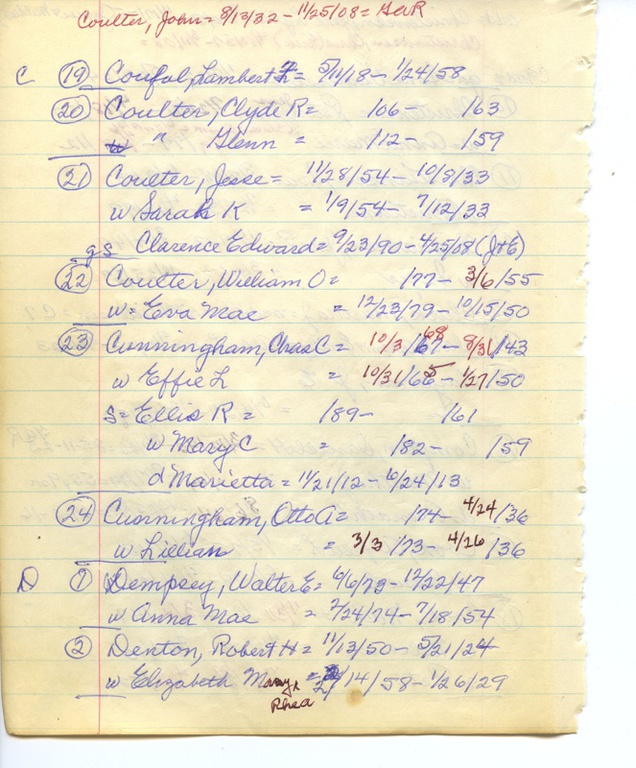 Coulter, John = 8/13/32 - 11/25/08 = GAR
C (19) Coufal, Lambert F = 5/11/18 - 1/24/58
(20) Coulter, Clyde R = /06 - /63
" Glenn = /12 - /59
(21) Coulter, Jesse = 11/28/54 - 10/8/33
w Sarah K = 1/9/54 - 7/12/33
gs Clarence Edward = 9/23/90 - 4/25/08 (J+E)
(22) Coulter, William O = /77 - 3/6/55
w = Eva Mae = 12/23/79 - 10/15/50
(23) Cunningham, Chas C = 10/3/68 - 8/31/43
w Effie L = 10/31/65 - 1/27/50
S = Ellis R = /89 - /61
w Mary C = /82 - /59
d Marietta = 11/21/12 - 6/24/13
(24) Cunningham, Otto A = /74 - 4/24/36
w Lillian = 3/3/73 - 4/26/36
D (1) Dempsey, Walter E = 6/6/73 - 12/22/47
w Anna Mae = 2/24/74 - 7/18/54
(2) Denton, Robert H = 11/13/50 - 5/21/24
w Elizabeth Mary = 2/14/58 - 1/26/29
Rhea